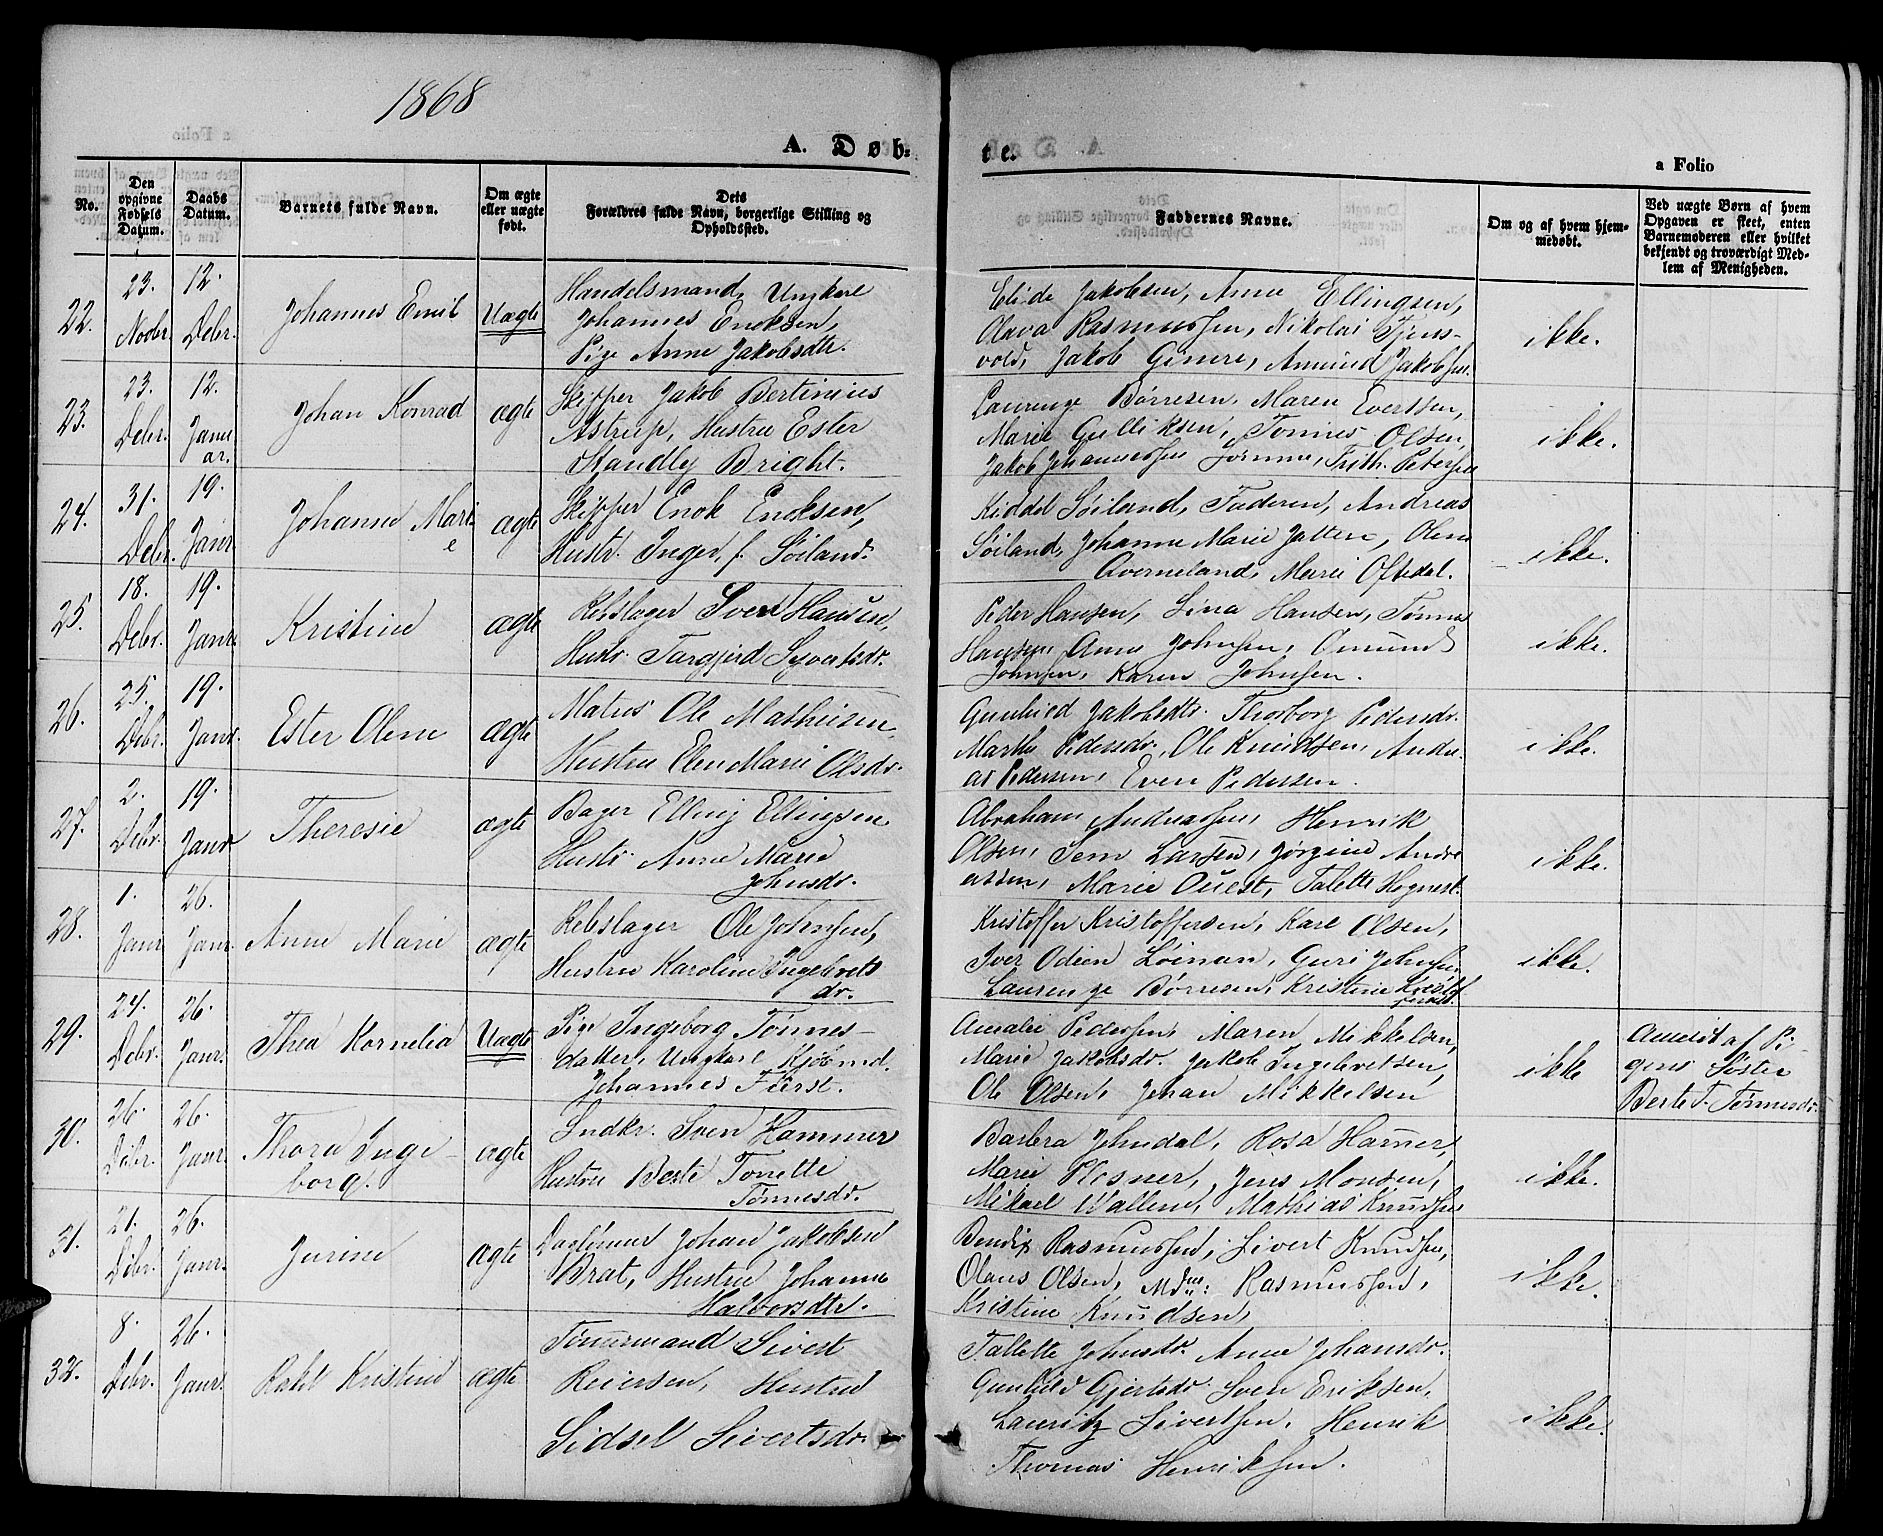 1868
A. Døb-
te.
a Folio
No.
Den opgivne Fødsels Datum.
Daabs Datum.
Barnets fulde Navn.
Om ægte eller uægte født.
Dets Forældres fulde Navn, borgerlige Stilling og Opholdssted.
Faddernes Navne.
Om og af hvem hjemmedøbt.
Ved uægte Børn af hvem Opgaven er skeet, enten Barnemoderen eller hvilket bekjendt og troværdigt Medlem af Menigheden.
22. 23. Novbr. 12. Debr. Johannes Emil Uægte
Handelsmand, Ungkarl
Johannes Enoksen,
Pige Anne Jakobsdtr.
Elide Jakobsen, Anne Ellingsen,
Olava Rasmussen, Nikolai Tjens-
vold, Jakob Gimre, Amund Jakobsen.
ikke.
23. 23. Debr. 12. Januar. Johan Konrad ægte
Skipper Jakob Bertinius
Astrup, Hustru Ester
Standley Bright.
Laurenze Børresen, Maren Evertsen,
Marie Gulliksen, Tønnes Olsen,
Jakob Johannessen, Frith. Petersen
ikke.
24. 31. Debr. 19. Janr. Johanne Marie ægte
Skipper Enok Enoksen,
Hustr. Inger, f. Søiland.
Kiddel Søiland, Faderen, Andreas
Søiland, Johanne Marie Jatten, Olene
Qverneland, Marie Oftedal.
ikke.
25. 18. Debr. 19. Janr. Kristine ægte
Rebslager Sven Hansen,
Hustr. Targjerd Syvertsdr.
Peder Hansen, Sina Hansen, Tønnes
Hansen, Anne Johnsen, Omund
Johnsen, Karen Johnsen.
ikke.
26. 25. Debr. 19. Janr. Ester Olene ægte
Matros Ole Mathiesen
Hustru Elen Marie Olsdr.
Gunhild Jakobsdtr. Thorborg Pedersdr.
Marthe Pedersdr., Ole Knudsen, Andre-
as Pedersen, Even Pedersen.
ikke.
27. 2. Debr. 19. Janr. Theresie ægte
Bager Elling Ellingsen
Hustr. Anne Marie
Johnsdr.
Abraham Andreassen, Henrik
Olsen, Sem Larsen, Jørgine Andre
assen, Marie Quest, Talette Hognest.
ikke.
28. 1. Janr. 26. Janr. Anne Marie ægte
Rebslager Ole Johnsen,
Hustru Karoline Ingebrets
dr.
Kristoffer Kristoffersen, Karl Olsen,
Iver Odeen Løinan, Guri Johnsen
Laurenze Børresen, Kristine Kristof
fersdt.
ikke.
29. 24. Debr. 26. Janr. Thea Kornelia Uægte
Pige Ingeborg Tønnes-
datter, Ungkarl Kjøbmd.
Johannes Fürst.
Amalie Pedersen, Maren Mikkelsen,
Marie Jakobsdr. Jakob Ingebretsen,
Ole Olsen, Johan Mikkelsen
ikke
Anmeldt af Pi-
gens Søster
Berte T. Tønnesdr.
30. 26. Debr. 26. Janr. Thora Inge-
borg. ægte
Sndkr. Sven Hammer
Hustru Berte Tonette
Tønnesdr.
Barbra Johndal, Rosa Hamer,
Marie Plosner, Jens Monsen,
Mikael Wallem, Mathias Knudsen
ikke.
31. 21. Debr. 26. Janr. Jurine ægte
Dagleiner Johan Jakobsen
Brat, Hustru Johanne
Halvorsdtr.
Bendix Rasmussen, Sivert Knudsen,
Olaus Olsen, Mdm: Rasmussen,
Kristine Knudsen,
ikke.
32. 8. Debr. 26. Janr. Rakel Kristine ægte
Tømmermand Sivert
Reiersen, Hustru
Sidsel Sivertsdr.
Tallette Johnsdr. Anne Johansdr.
Gunhild Gjertsdr. Sven Eriksen,
Lauritz Sivertsen, Henrik
Thomas Henriksen.
ikke.